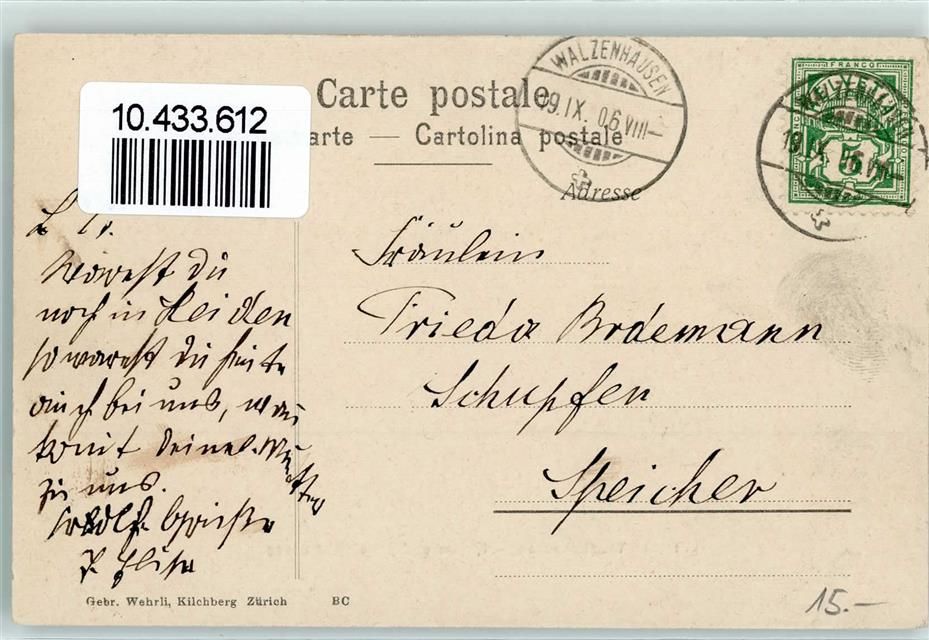 10.433.612
Carte postale
arte — Cartolina postale
Adresse
WALZENHAUSEN
19.IX.06.VIII—
FRANCO
5
19.IX.06.VIII—
L. Fr.
Warest du
noch in Heiden
so warest du heute
auch bei uns, wan
komt deine Mutter
zu uns.
Grüße
Elise
Fräulein
Frieda Bodemann
Schupfen
Speicher
Gebr. Wehrli, Kilchberg Zürich BC
15.—